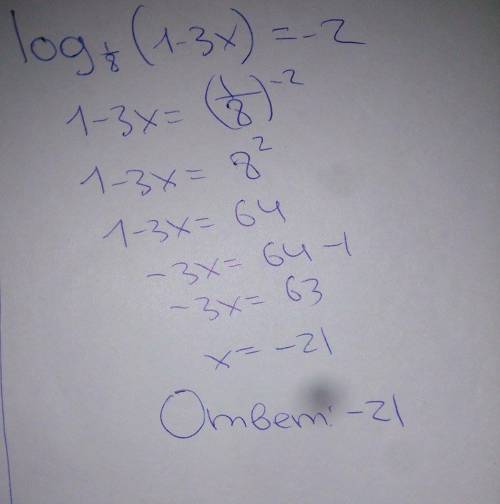 log_{1/8} (1-3x) = -2
1-3x = (1/8)^{-2}
1-3x = 8^2
1-3x = 64
-3x = 64-1
-3x = 63
x = -21
Ответ: -21